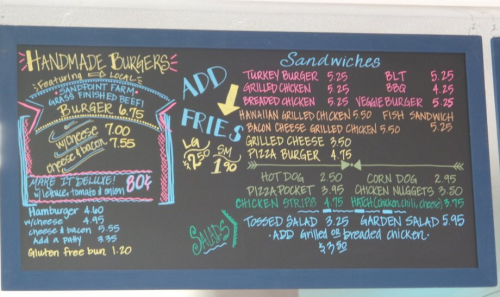 HANDMADE BURGERS
Featuring LOCAL
SANDPOINT FARM
GRASS FINISHED BEEF!
BURGER 6.75
w/cheese 7.00
cheese & bacon 7.55
MAKE IT DELUXE! 80¢
w/lettuce, tomato & onion
Hamburger 4.60
w/cheese 4.95
cheese & bacon 5.55
Add a patty 3.35
Gluten free bun 1.20
ADD
FRIES
LG SM
SALADS
Sandwiches
TURKEY BURGER 5.25 BLT 5.25
GRILLED CHICKEN 5.25 BBQ 4.25
BREADED CHICKEN 5.25 VEGGIE BURGER 5.25
HAWAIIAN GRILLED CHICKEN 5.50 FISH SANDWICH
BACON CHEESE GRILLED CHICKEN 5.50 5.25
GRILLED CHEESE 3.50
PIZZA BURGER 4.75
HOT DOG 2.50 CORN DOG 2.95
PIZZA POCKET 3.95 CHICKEN NUGGETS 3.50
CHICKEN STRIPS 4.75 HATCH (chicken, chili, cheese) 3.75
TOSSED SALAD 3.25 GARDEN SALAD 5.95
• ADD grilled or breaded chicken •